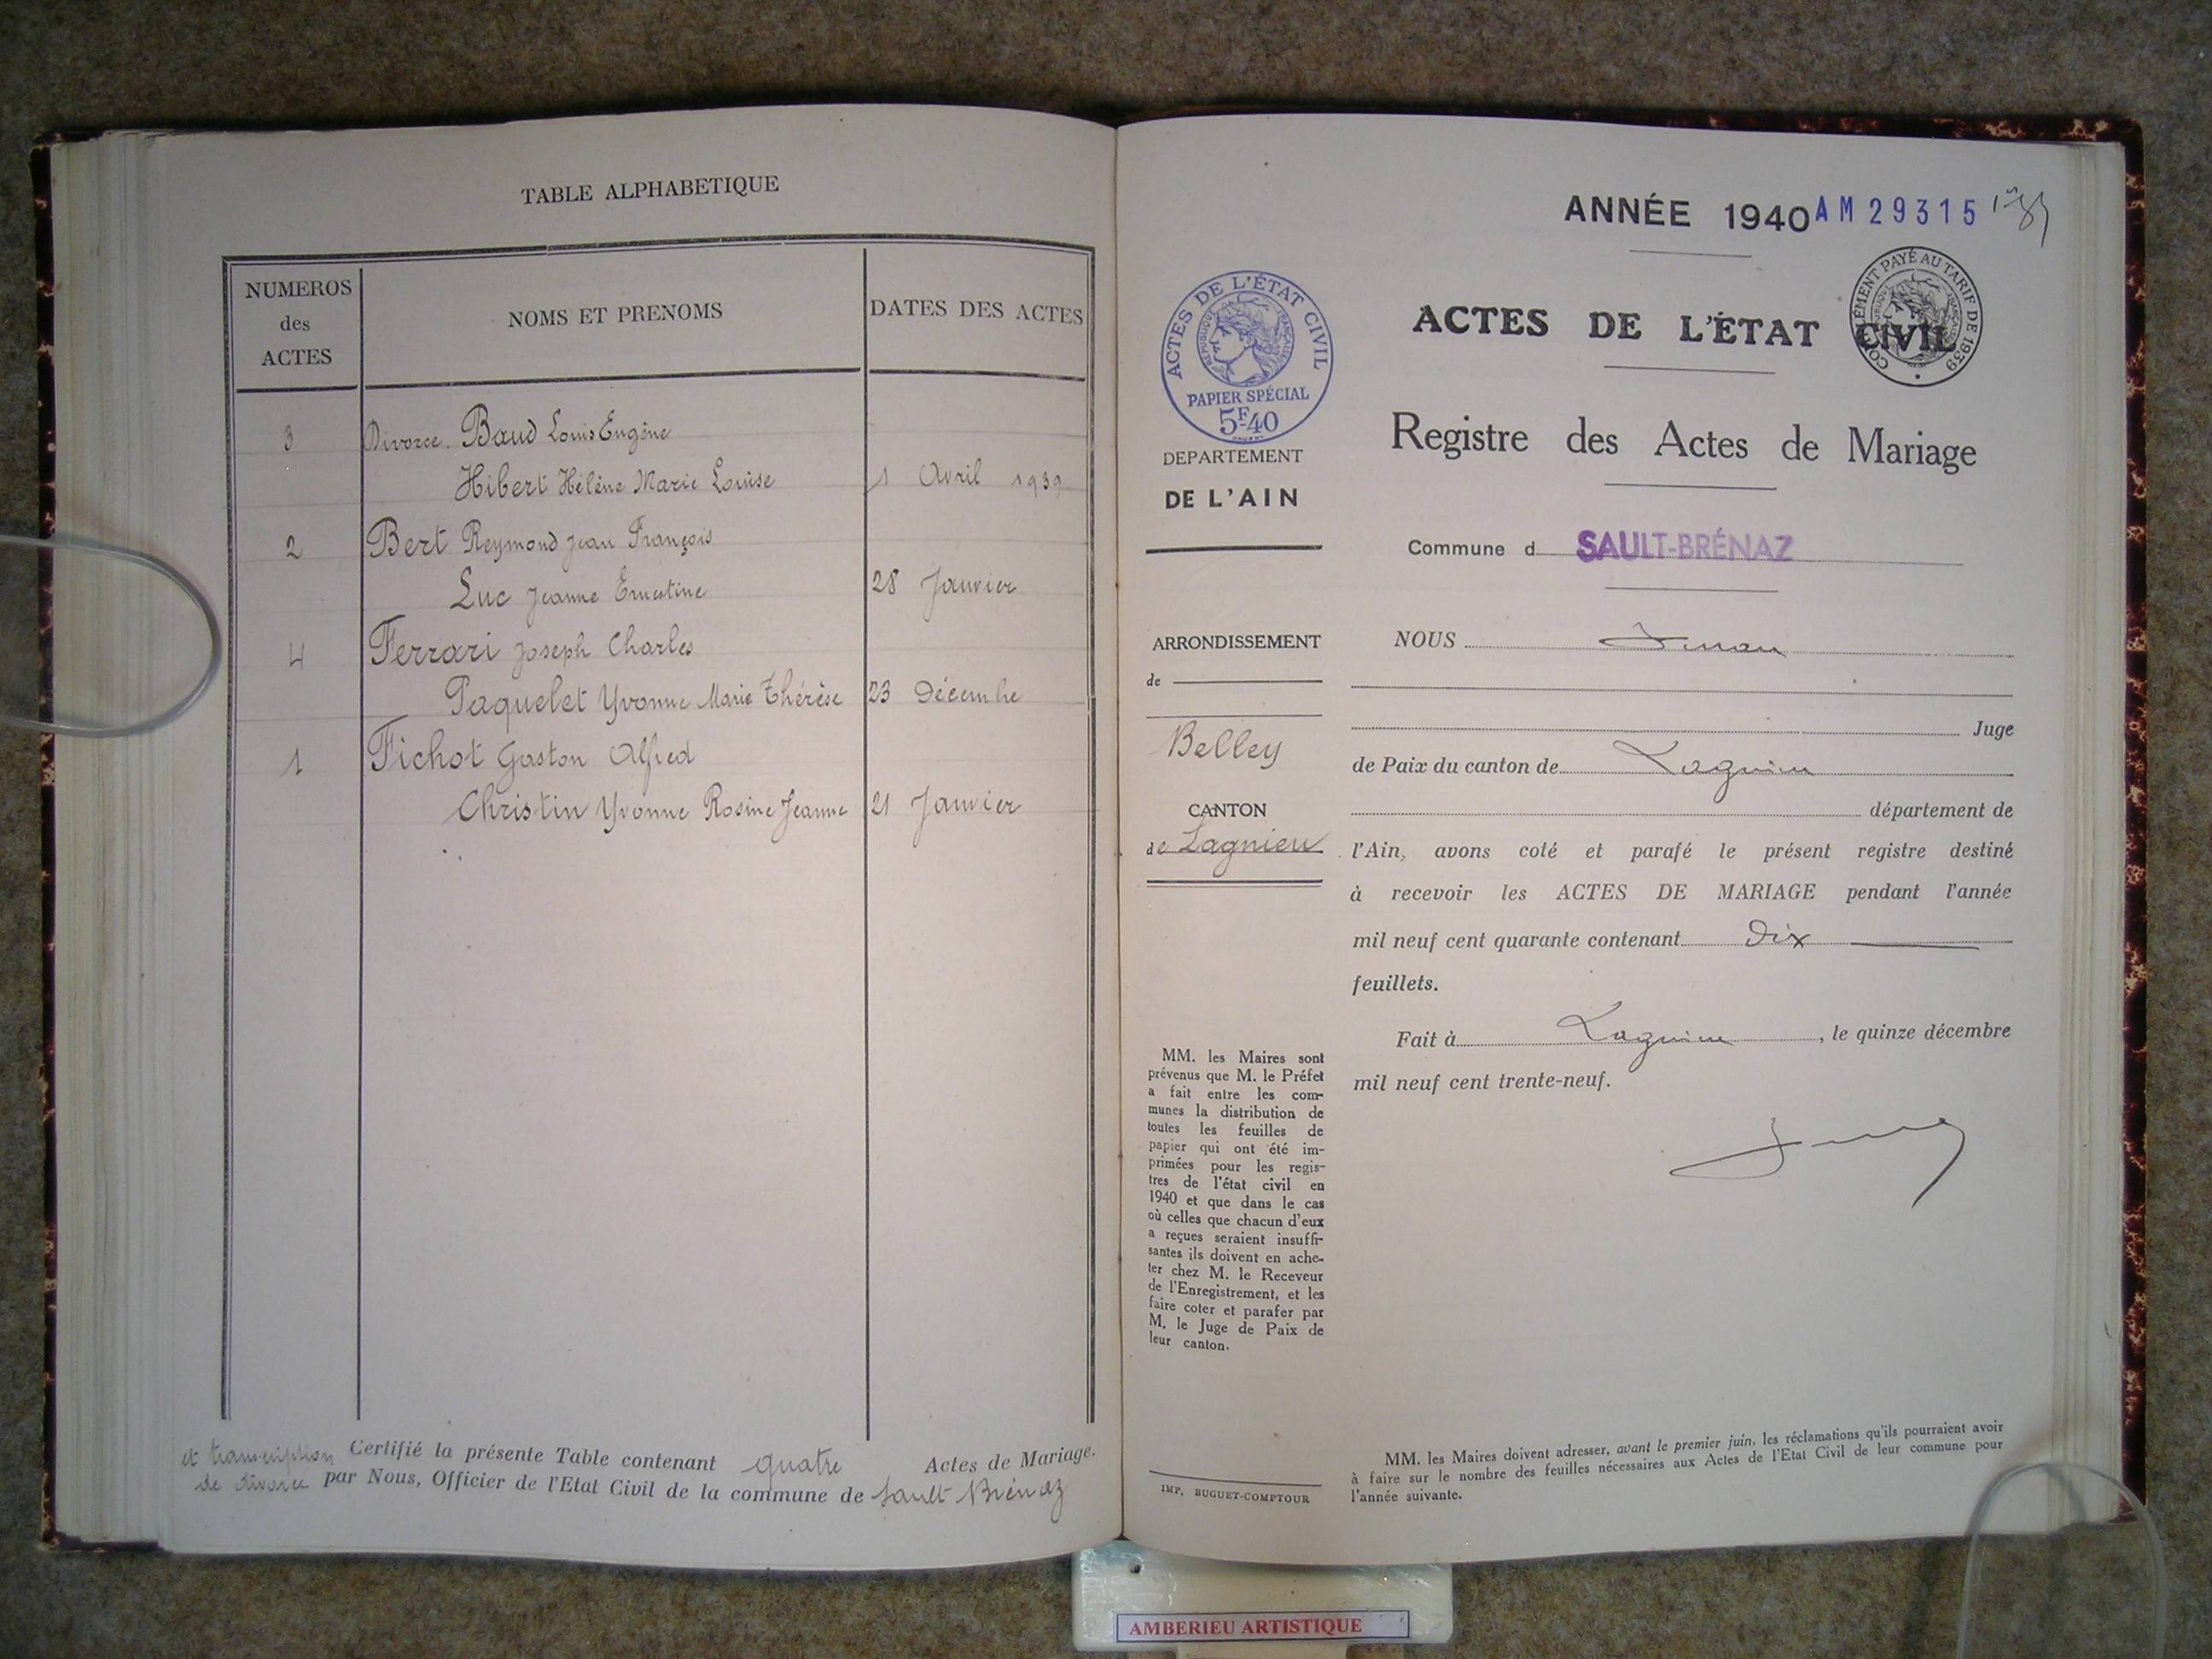 TABLE ALPHABETIQUE
NUMEROS des ACTES
NOMS ET PRENOMS
DATES DES ACTES
3 Divorce. Baud Louis Eugène
Hibert Hélène Marie Louise 1 Avril 1939
2 Bert Reymond Jean François
Luc Jeanne Ernestine 28 Janvier
4 Ferrari Joseph Charles
Paquelet Yvonne Marie Thérèse 23 Décembre
1 Fichot Gaston Alfred
Christin Yvonne Rosine Jeanne 21 Janvier
et transcription Certifié la présente Table contenant quatre Actes de Mariage.
de divorce par Nous, Officier de l'Etat Civil de la commune de Sault Brénaz
ANNÉE 1940 AM 29315
ACTES DE L'ÉTAT CIVIL
PAPIER SPÉCIAL
5F40
COMPLÉMENT PAYÉ AU TARIF DE 1939
RÉPUBLIQUE FRANÇAISE
ACTES DE L'ÉTAT CIVIL
Registre des Actes de Mariage
Commune d SAULT-BRÉNAZ
DEPARTEMENT
DE L'AIN
ARRONDISSEMENT
de
Belley
CANTON
de Lagnieu
MM. les Maires sont
prévenus que M. le Préfet
a fait entre les com-
munes la distribution de
toutes les feuilles de
papier qui ont été im-
primées pour les regis-
tres de l'état civil en
1940 et que dans le cas
où celles que chacun d'eux
a reçues seraient insuffi-
santes ils doivent en ache-
ter chez M. le Receveur
de l'Enregistrement, et les
faire coter et parafer par
M. le Juge de Paix de
leur canton.
IMP. BUGUET-COMPTOUR
NOUS
Juge
de Paix du canton de Lagnieu
département de
l'Ain, avons coté et parafé le présent registre destiné
à recevoir les ACTES DE MARIAGE pendant l'année
mil neuf cent quarante contenant Dix
feuillets.
Fait à Lagnieu, le quinze décembre
mil neuf cent trente-neuf.
MM. les Maires doivent adresser, avant le premier juin, les réclamations qu'ils pourraient avoir
à faire sur le nombre des feuilles nécessaires aux Actes de l'Etat Civil de leur commune pour
l'année suivante.
AMBERIEU ARTISTIQUE